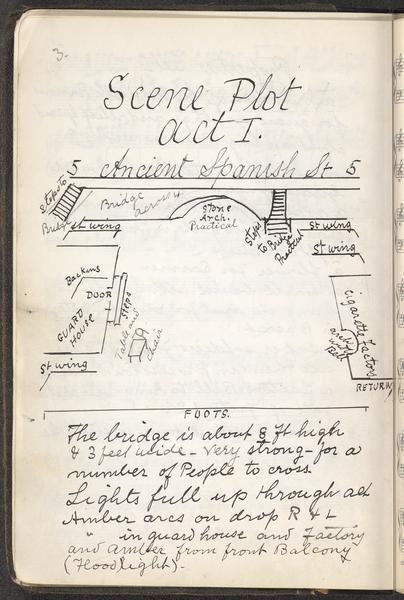 3.
Scene Plot
Act I.
5 Ancient Spanish St 5
Steps to
Bridge
Bridge
across 4
Stone
Arch.
Practical
Steps
to Bridge
Practical
St wing
St wing
St wing
Backing
DOOR
Steps
GUARD
HOUSE
Table and
Chair
Cigarette Factory
arch
with
Bell
St wing
RETURN
FOOTS.
The bridge is about 8 ft high
& 3 feet wide - very strong - for a
number of People to cross
Lights full up through act
Amber arcs on drop R & L
" in guard house and Factory
and amber from front Balcony
(Flood light).